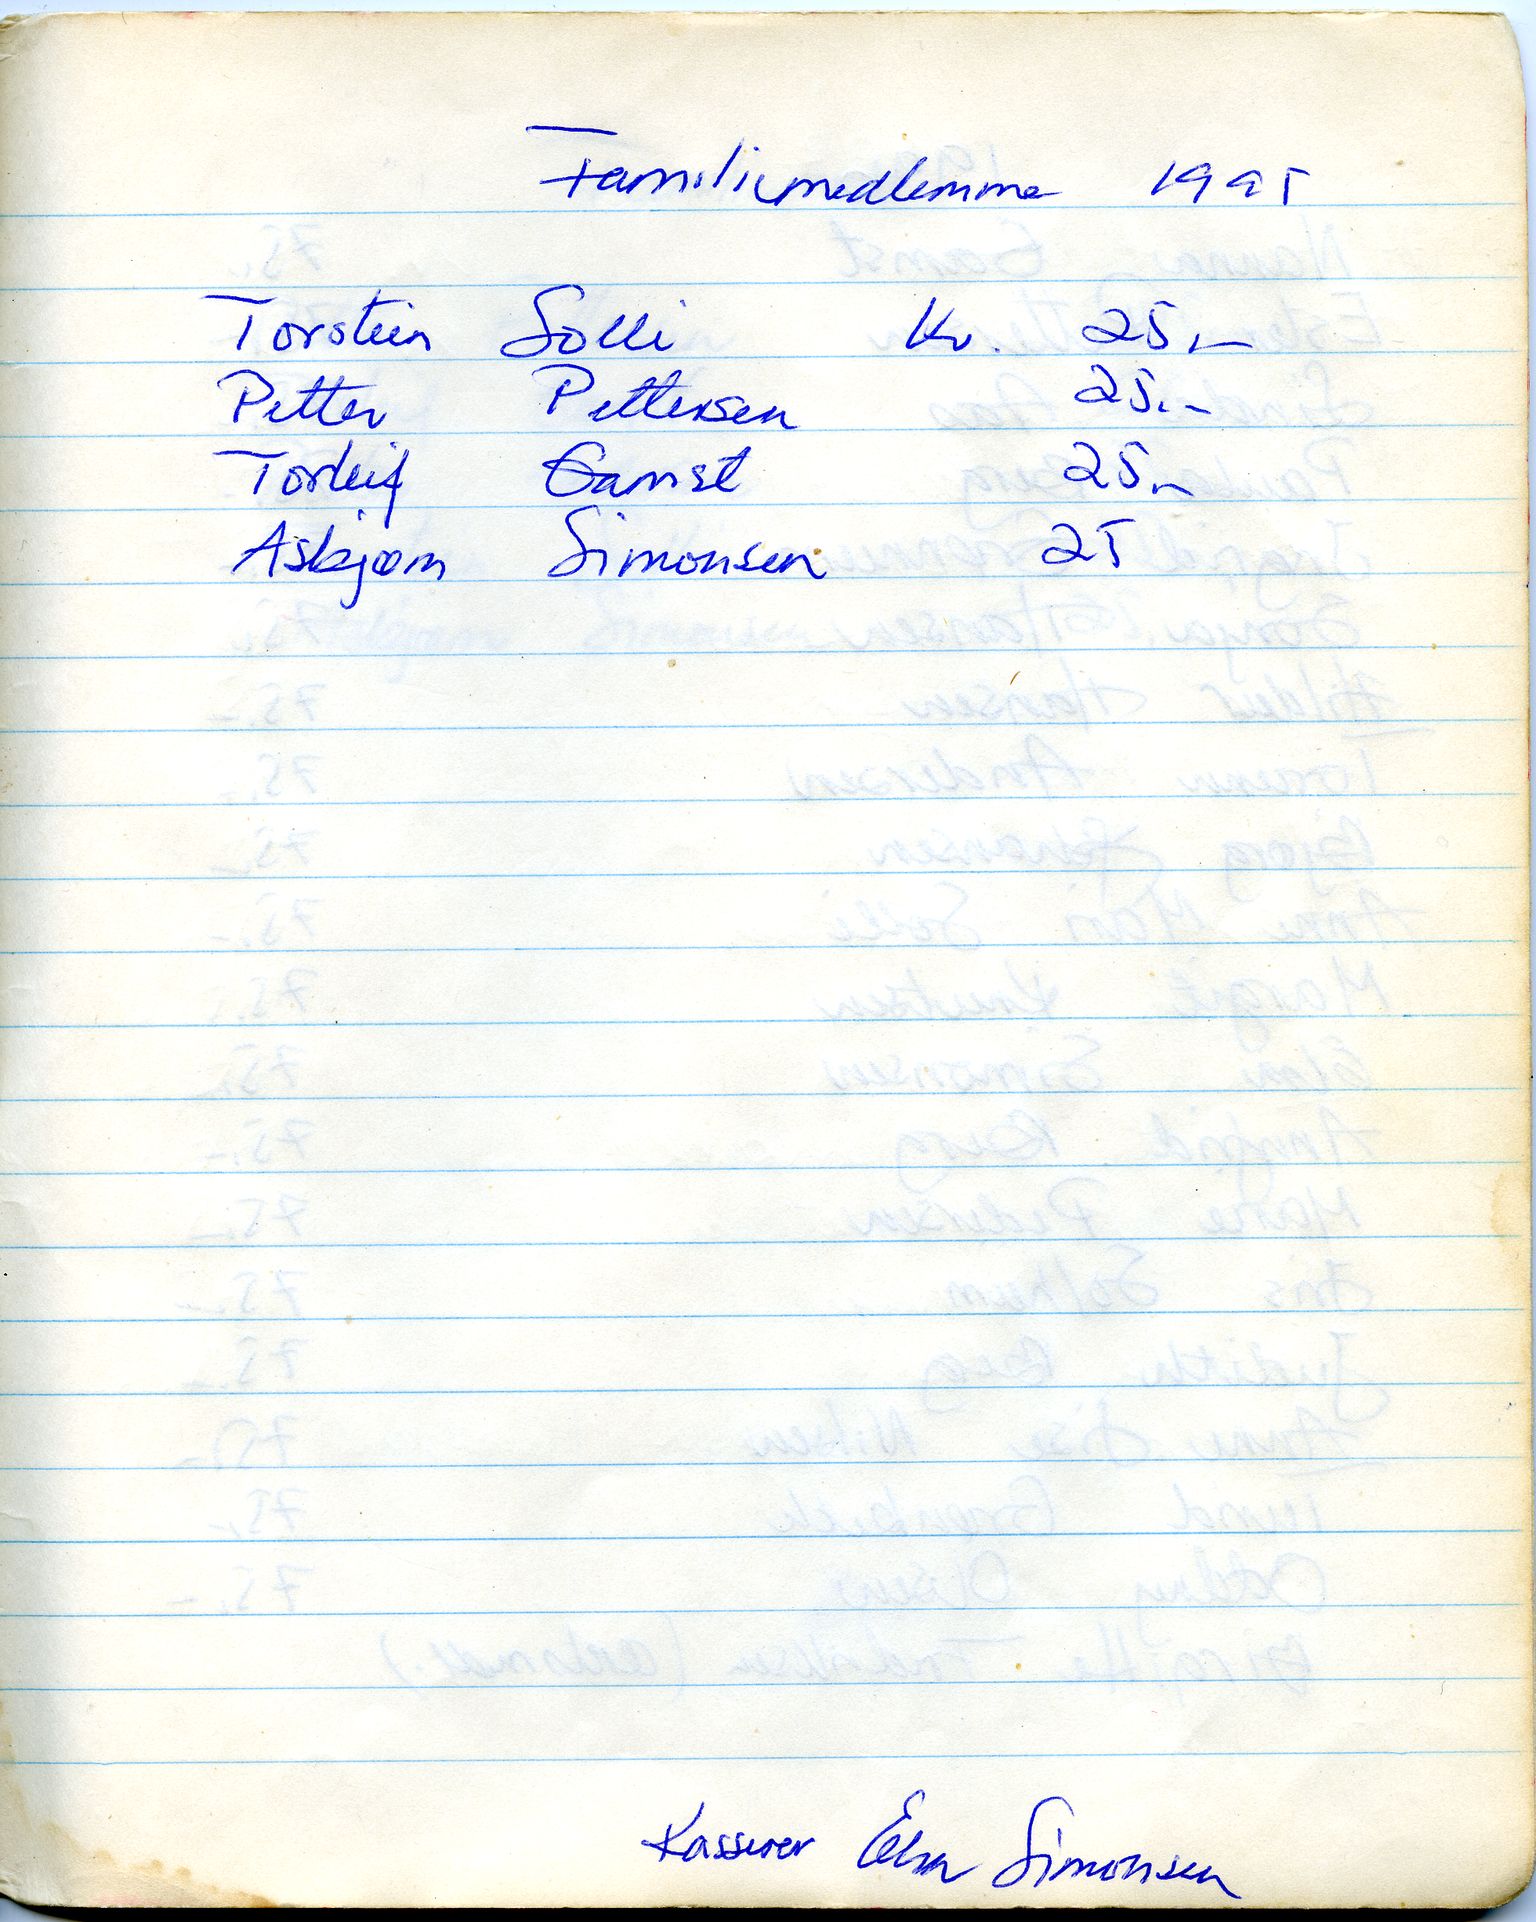 Familiemedlemme 1995
Torstein Solli Kr. 25,-
Petter Pettersen 25,-
Torleif Gamst 25,-
Asbjørn Simonsen 25
Kasserer Elsa Simonsen